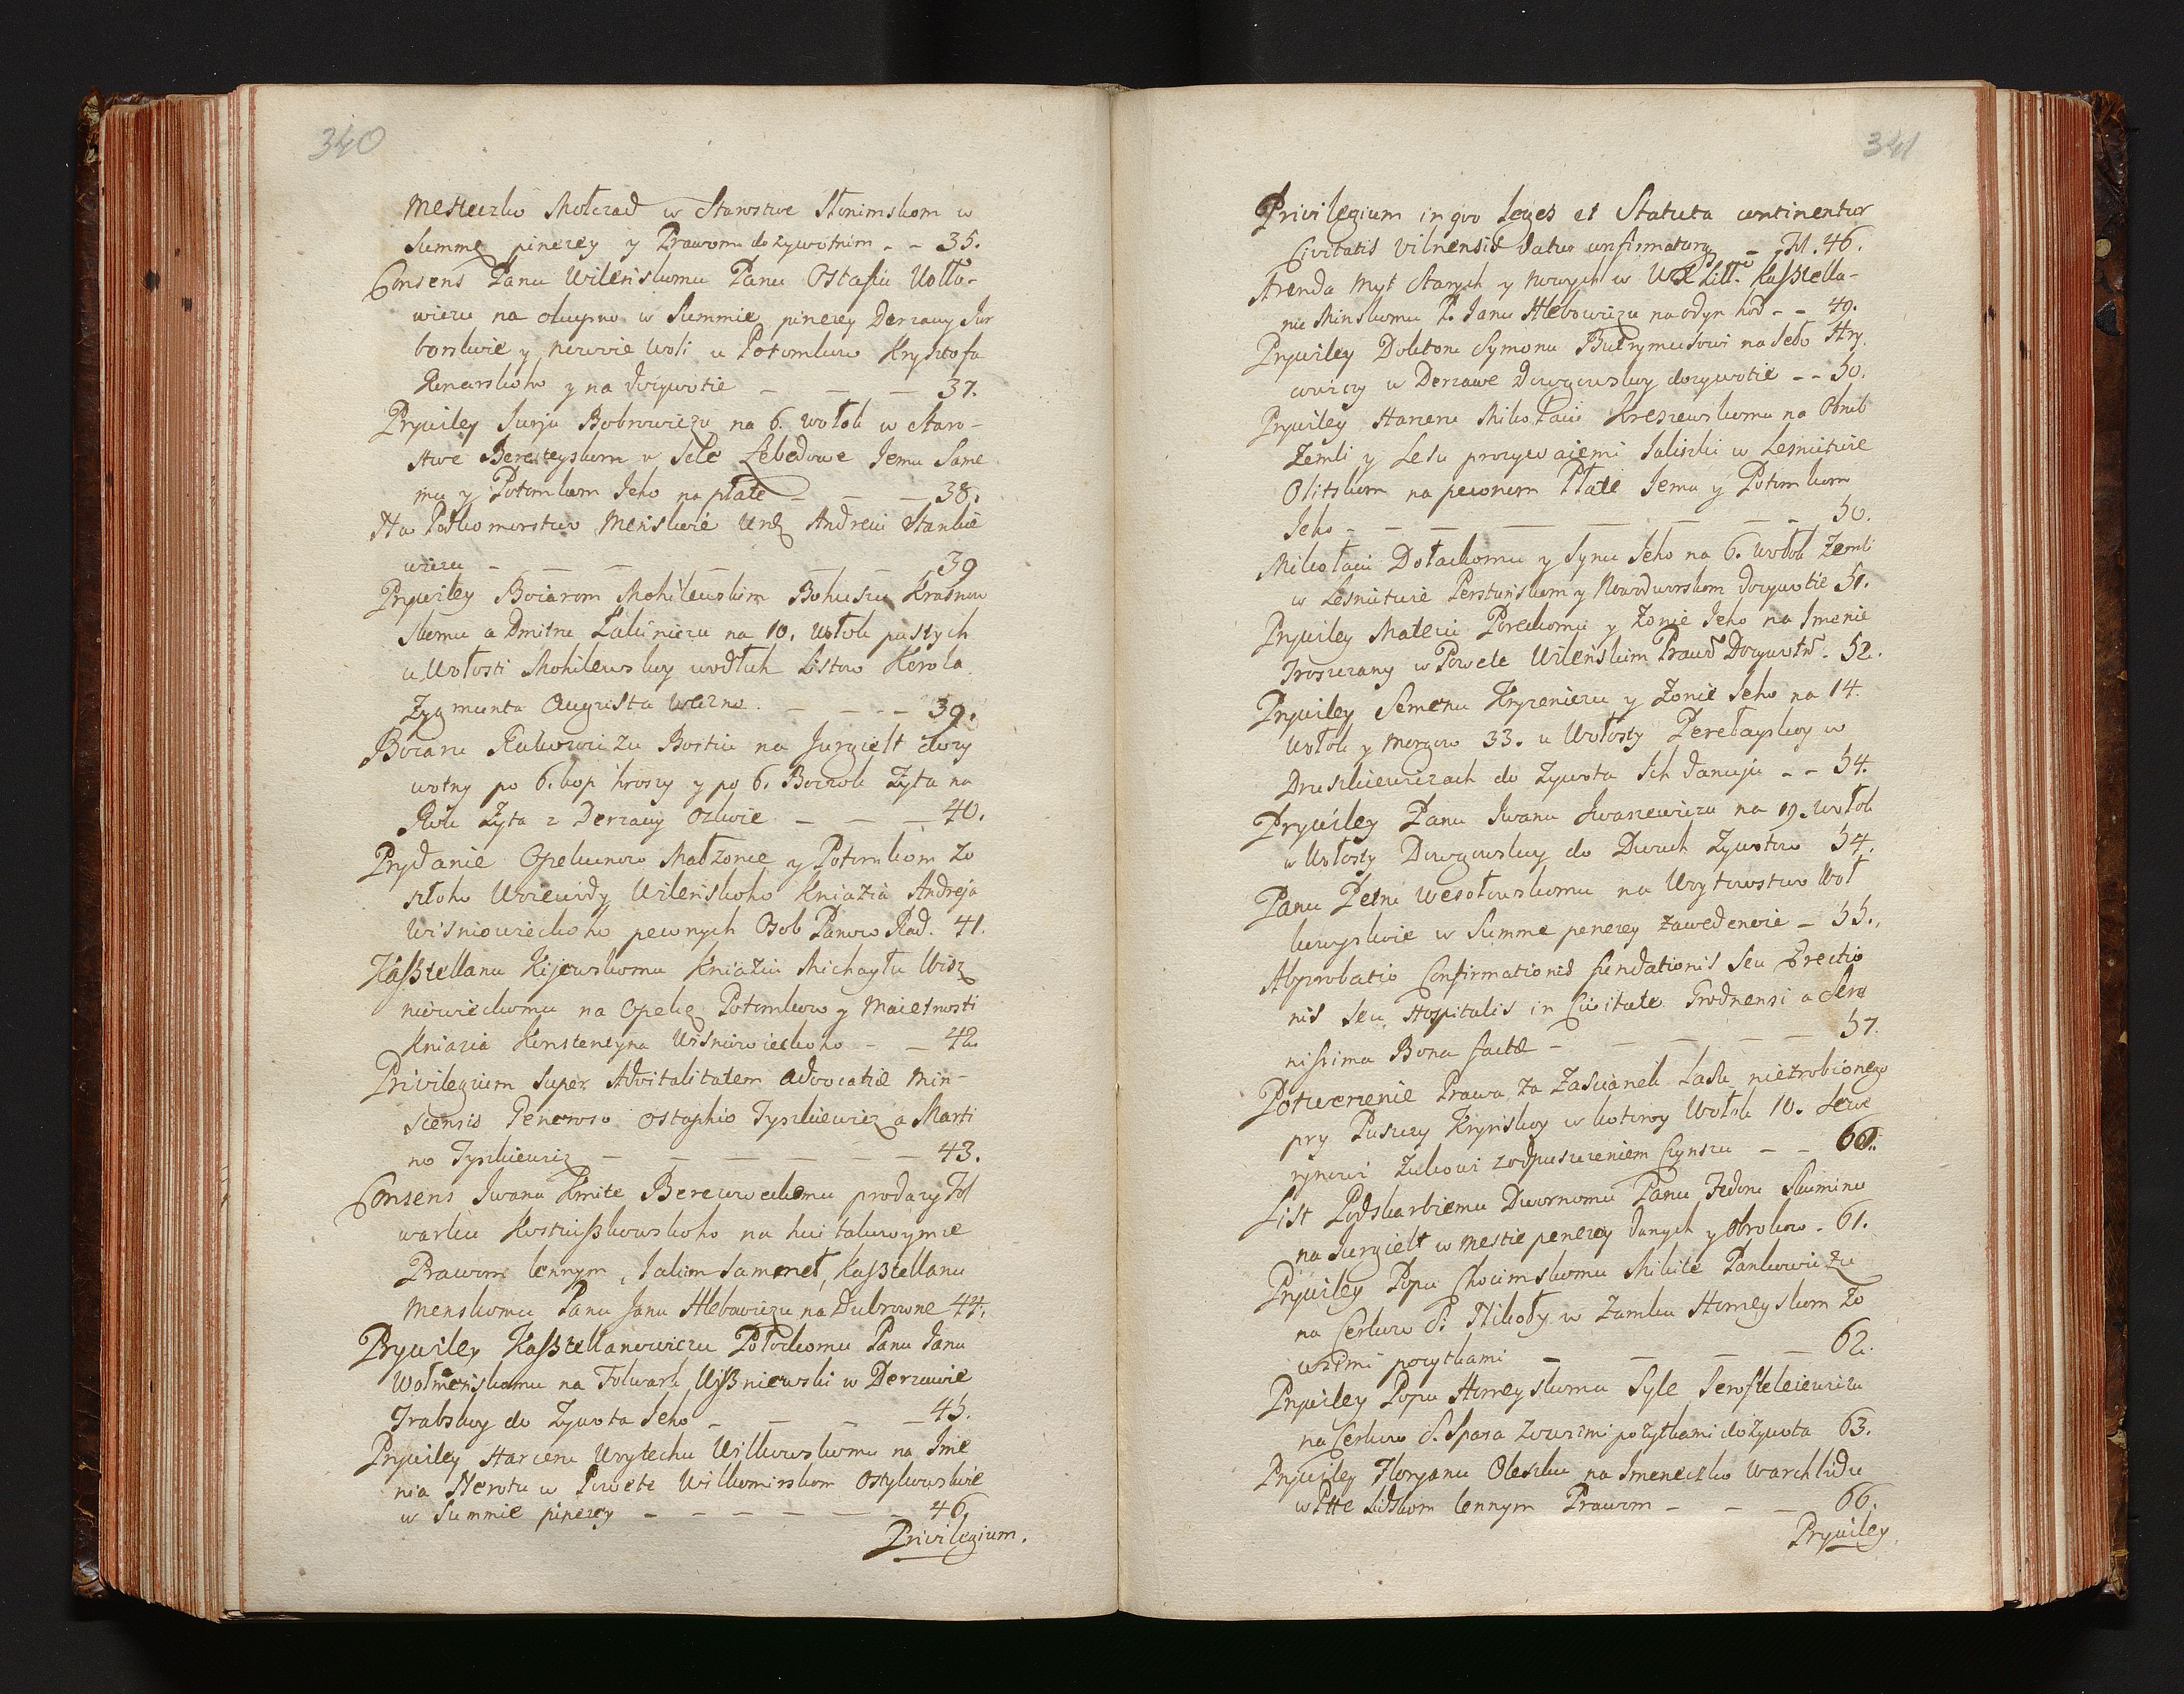 340
Mesteczko Mołczad w Starostwe Słonimskom w
Summę pinezey y Prawom dożywotnim - - 35.
Consens Panu Wilenskomu Panu Ostafiu Wołło-
wiczu na okupno w Summie pinezey Derzawy Jur
borskie y Nowoie Woli u Potomkow Krysztofa
Kunarskoho y na dożywotie - - - 37.
Prywiley Jurju Bobrowiczu na 6. wołok w Staro-
stwe Beresteyskom w Sele Lebedowe Jemu Same
mu y Potomkom Jeho na płate - - - 38.
Na Podkomorstwo Menskoie Urz Andreiu Stankie
wiczu - - - - - 39
Prywiley Boiarom Mohilewskim Bohuszu Krasnow
skomu a Dmitru Zaluniczu na 10. wołok pustych
u Wołosti Mohilewskoy wodłuh Listow Korola
Zygmunta Augusta Weczno. - - - 39.
Boiaru Rakowiczu Bortiu na Jurgielt dozy
wotny po 6. kop hroszy y po 6. Boczok Zyta na
Rok Zyta z Derzawy Ozkoie - - - 40.
Prydanie Opekunow Małzonce y Potomkom Zo
szłoho Woiewody Wilenskoho Kniazia Andreja
Wisniowieckoho pewnych Osob Panow Rad. 41.
Kaßtellanu Kijewskomu Kniaziu Michayłu Wisz
niowieckomu na Opekę Potomkow y Maietnosti
Kniazia Konstentyna Wisniowieckoho - - 42.
Privilegium super Advitalitatem Advocatiæ Min-
scensis Generoso Ostaphio Tyszkiewicz a Marti
no Tyszkiewicz - - - - - - 43.
Consens Iwanu Kmite Berezweckomu prodazy Fol
warku Kostiußkowskoho na hui takwoymie
Prawom lennym, Jakim sam met, Kaßtellanu
Menskomu Panu Janu Hlebowiczu na Dubrowne 44.
Prywiley Kaßtellanowiczu Połockomu Panu Janu
Wołmenskomu na Folwark Wißniewski w Derzawie
Trabskoy do Zywota Jeho - - - - 45.
Prywiley Harceru Woytechu Wilkowskomu na Ime
nia Nerotu w Powete Wilkomirskom Ostykowskoie
w Summie pinezey - - - - - - 46.
Privilegium.
341
Privilegium in quo Leges et Statuta continentur
Civitatis Vilnensis datur confirmatury - Fol. 46.
Arenda Myt Starych y Nowych w WX Litt. Kaßtella-
nu Minskomu P. Janu Hlebowiczu na odyn hod - - 49.
Prywiley Doktoru Symonu Butrymusowi na Seło Hry
cowiczy w Derzawe Dowgowskoy dozywotie - - 50.
Prywiley Harceru Mikołaiu Kreszewskomu na Obrub
Zemli y Lesu prozywaiemi Saliszki w Lesnictwie
Olitskom na pewnom Płate Jemu y Potomkom
Jeho - - - - - - - - 50.
Mikołaiu Dołackomu y Synu Jeho na 6. wołok Zemli
w Lesnictwie Perstunskom y Nowodworskom dozywotie 51.
Prywiley Mateiu Poreckomu y Zonie Jeho na Imenie
Troszczany w Powete Wilenskim Prawõ Dozywotñ - 52.
Prywiley Semenu Kryzeniczu y Zonie Jeho na 14.
wołok y Morgow 33. u Wołosty Perełayskoy w
Druszkiewiczach do Zywota Ich danuju - - 54.
Prywiley Panu Iwanu Iwaszewiczu na 19. wołok
w Wołosty Dowgowskoy do Dwuch Zywotow 54.
Panu Petru Wesołowskomu na Woytowstwo Woł
kowyskoie w Summe penezey zawedenoie - 55.
Approbatio Confirmationis fundationis seu Erectio
nis seu Hospitalis in Civitate Grodnensi a Sere
nissima Bona factæ - - - - - 57.
Potwerzenie Prawa za Zascianek Lasu niezrobionego
pry Puszczy Krynskoy w kotoroy Wołok 10. Sewe
rynowi Zukowi zodpuszczeniem Czynszu - - 60.
List Podskarbiemu Dwornomu Panu Fedoru Skuminu
na Jurgielt w Mestie penezey danych y Obrokow - 61.
Prywiley Popu Chocimskomu Mikite Pankowiczu
na Cerkow S. Mikoły w Zamku Homeyskom Zo
wsimi pozytkami - - - - 62.
Prywiley Popu Homeyskomu Syle Serofteleiewiczu
na Cerkow S. Spasa zowsimi pozytkami dożywota 63.
Prywiley Floryanu Oleszku na Imeneczko Warchlidu
w Ptte Lidskom lennym Prawom - - - 66.
Prywiley